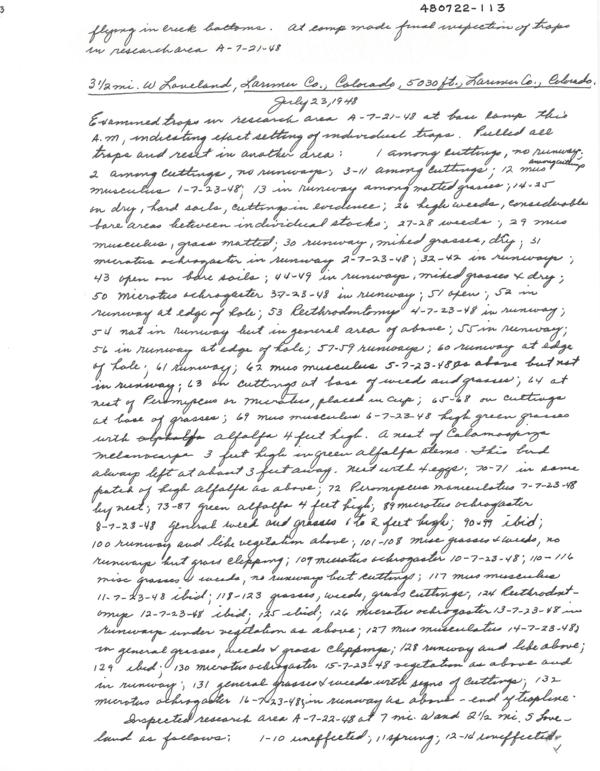 3
480722-113
flying in creek bottoms. At camp made final inspection of traps
in research area A-7-21-48
3 1/2 mi. W Loveland, Larimer Co., Colorado, 5030 ft., Larimer Co., Colorado.
July 23, 1948
Examined traps in research area A-7-21-48 at base camp this
A.M., indicating exact setting of individual traps. Pulled all
traps and reset in another area: 1 among cuttings, no runway;
2 among cuttings, no runways; 3-11 among cuttings; 12 mus among cuttings
musculus 1-7-23-48; 13 in runway among matted grasses; 14-25
on dry, hard soils, cuttings in evidence; 26 high weeds, considerable
bare areas between individual stocks; 27-28 weeds; 29 mus
musculus, grass matted; 30 runway, mixed grasses, dry; 31
microtus ochrogaster in runway 2-7-23-48; 32-42 in runways;
43 open on bare soils; 44-49 in runways, mixed grasses & dry;
50 microtus ochrogaster 3-7-23-48 in runway; 51 open; 52 in
runway at edge of hole; 53 Reithrodontomy 4-7-23-48 in runway;
54 not in runway but in general area of above; 55 in runway;
56 in runway at edge of hole; 57-59 runways; 60 runway at edge
of hole; 61 runway; 62 mus musculus 5-7-23-48 as above but not
in runway; 63 on cuttings at base of weeds and grasses; 64 at
nest of Peromyscus or microtus, placed in cup; 65-68 on cuttings
at base of grasses; 69 mus musculus 6-7-23-48 high green grasses
with alfalfa 4 feet high. A nest of Calamospiza
melanocarpa 3 feet high in green alfalfa stems. This bird
always left at about 3 feet away. Nest with 4 eggs. 70-71 in same
patch of high alfalfa as above; 72 Peromyscus maniculatus 7-7-23-48
by nest; 73-87 green alfalfa 4 feet high; 89 microtus ochrogaster
8-7-23-48 General weed and grasses 1 to 2 feet high; 90-99 ibid;
100 runway and like vegetation above; 101-108 misc grasses & weeds, no
runways but grass clipping; 109 microtus ochrogaster 10-7-23-48; 110-116
misc grasses & weeds, no runways but cuttings; 117 mus musculus
11-7-23-48 ibid; 118-123 grasses, weeds, grass cuttings; 124 Reithrodont-
omys 12-7-23-48 ibid; 125 ibid; 126 microtus ochrogaster 13-7-23-48 in
runways under vegetation as above; 127 mus musculatus 14-7-23-48,
in general grasses, weeds & grass clippings; 128 runway and like above;
129 ibid; 130 microtus ochrogaster 15-7-23-48 vegetation as above and
in runway; 131 general grasses & weeds with signs of cuttings; 132
microtus ochrogaster 16-7-23-48, in runway as above - end of trapline.
Inspected research area A-7-22-48 at 7 mi. W and 2 1/2 mi. S Love-
land as follows: 1-10 uneffected; 11 sprung; 12-14 uneffected;